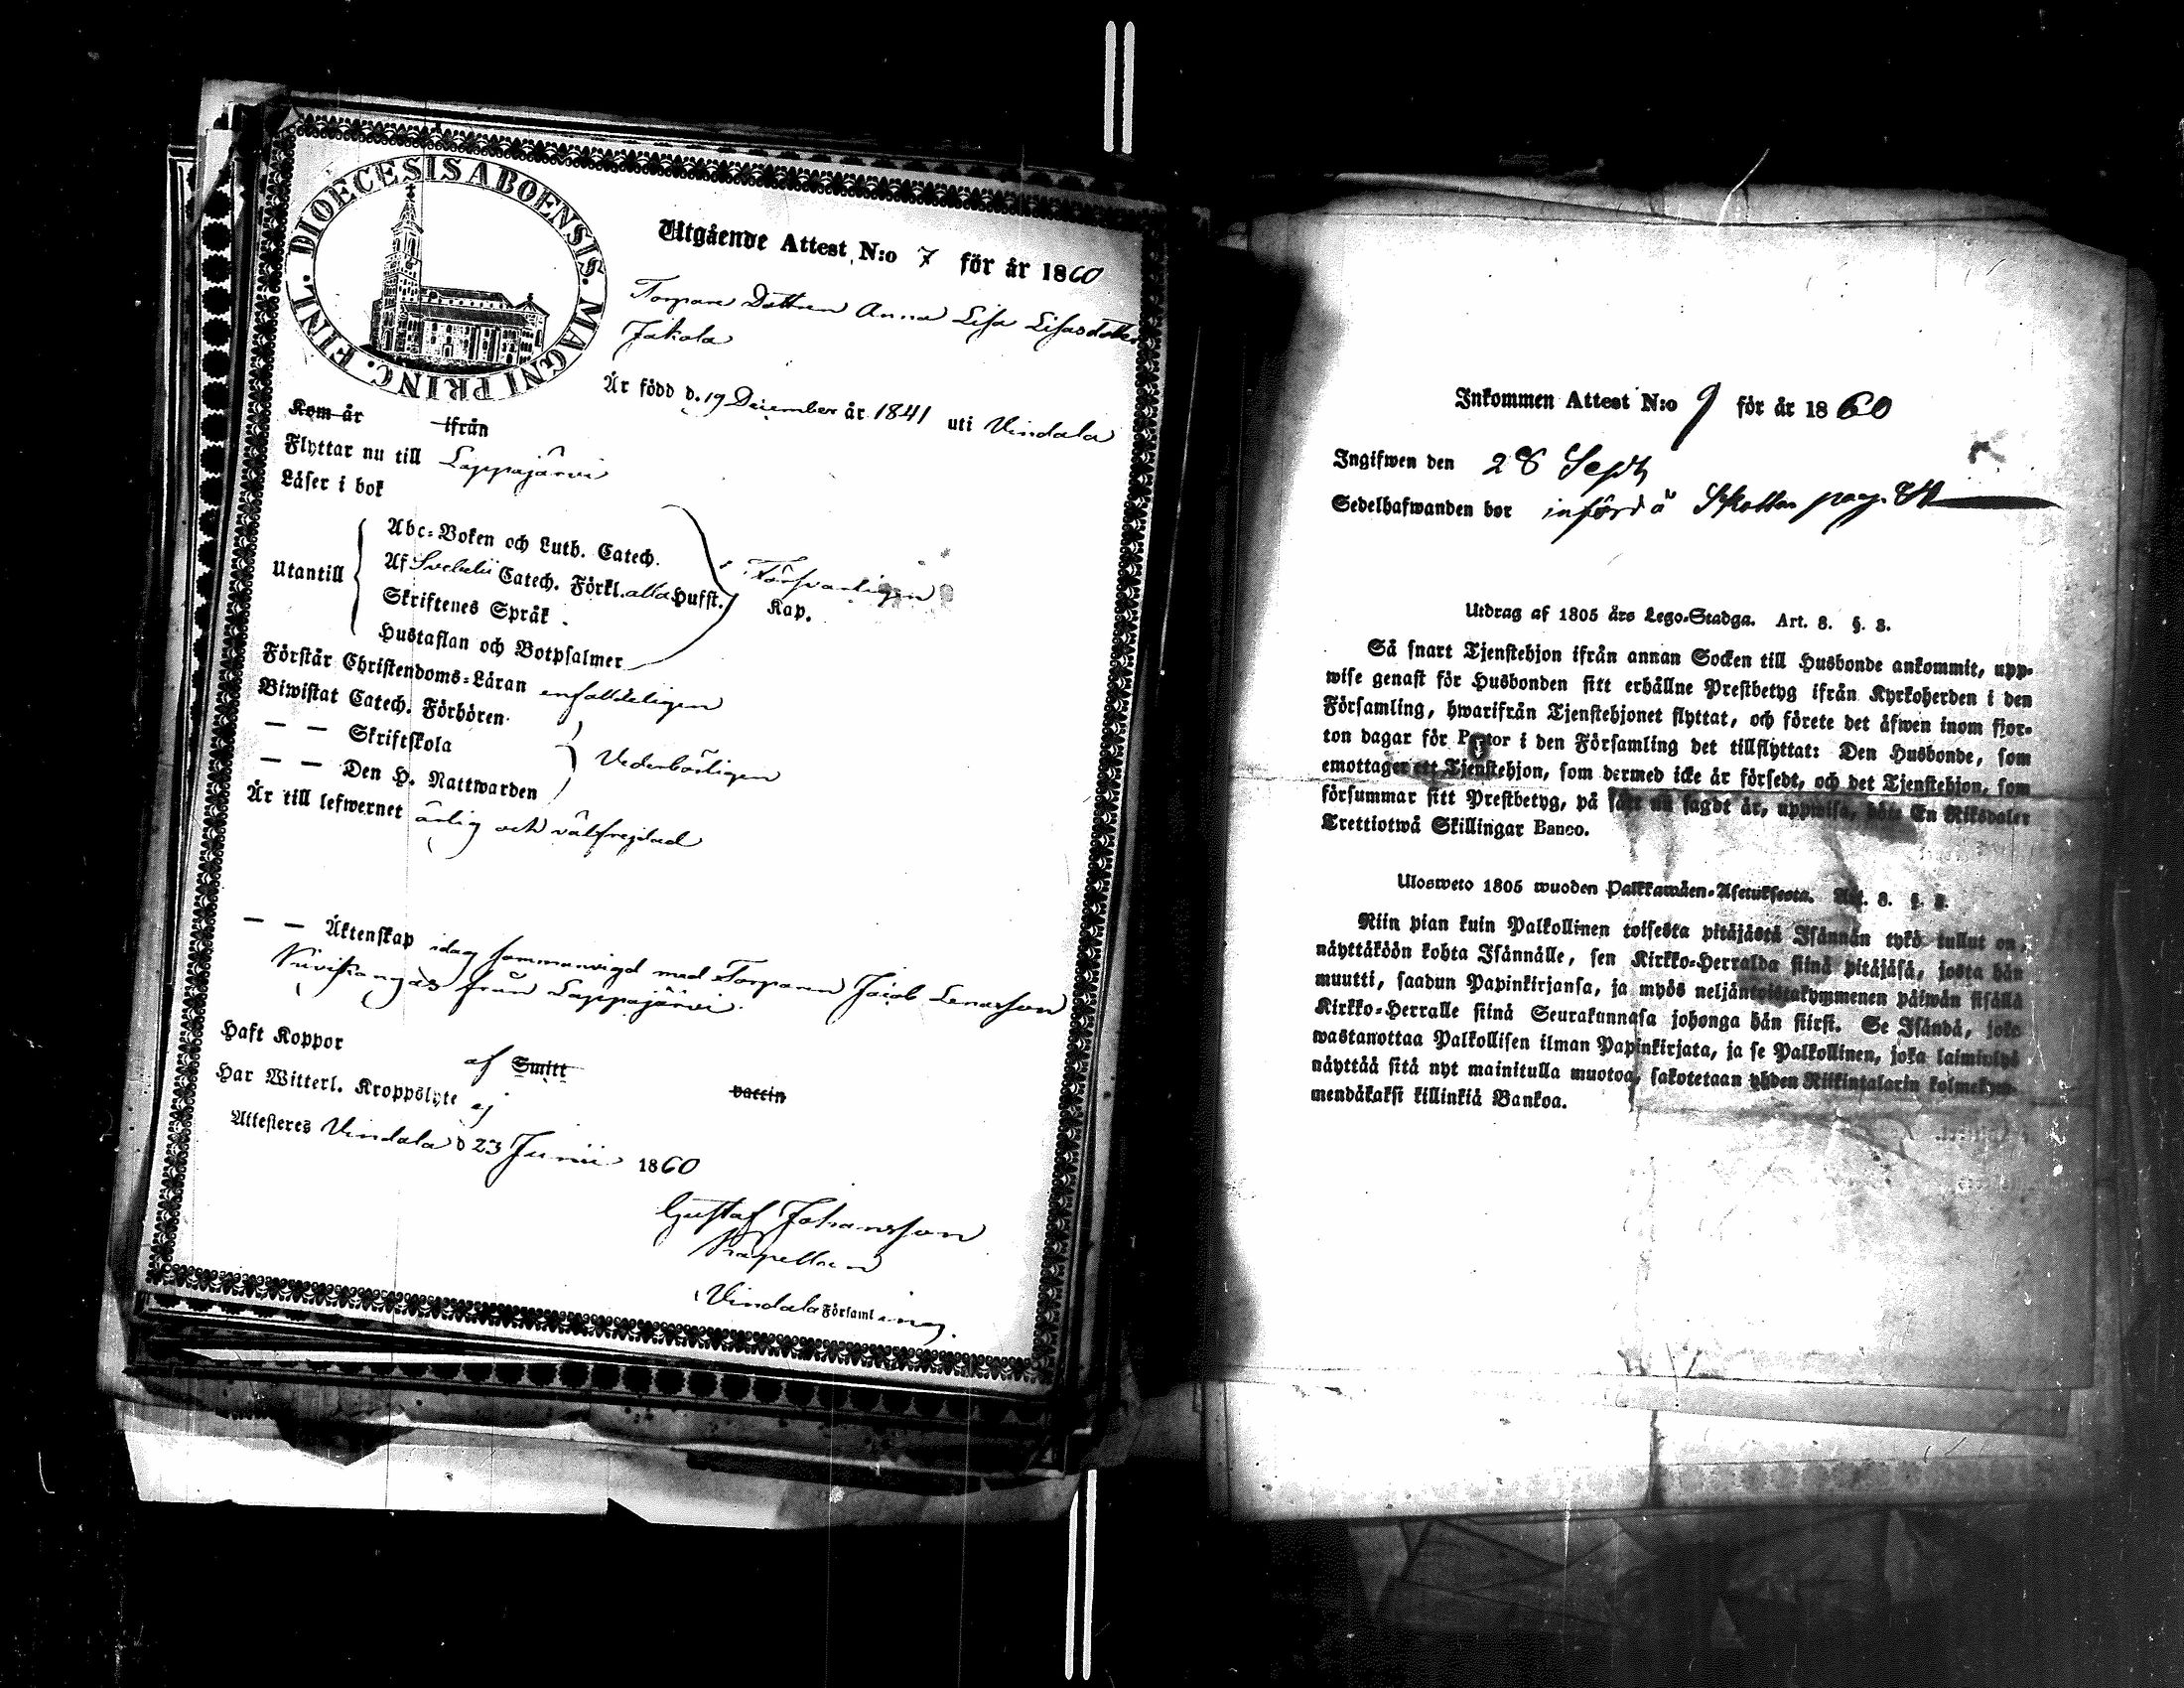 FINL. DIOECESIS ABOENSIS. MAGNI PRINC.
Utgående Attest N:o 7 för år 1860
Torpare Dottren Anna Lisa Lisasdotter
Jakola
Är född d. 19 December år 1841 uti Vindala
Kom år ifrån
Flyttar nu till Lappajärvi
Läser i bok
Utantill
Abc-Boken och Luth. Catech.
Af Svebelii Catech. Förkl. alla Hufst. Försvarligen
Kap.
Skriftenes Språk
Hustaflan och Botpsalmer
Förstår Christendoms-Läran enfalldeligen
Biwistat Catech. Förhören
— — Skriftskola Vederbörligen
— — Den H. Nattwarden
Är till lefwernet ärlig och välfrejdad
— — Äktenskap idag sammanvigd med Torparen Jacob
från Lappajärvi.
Haft Koppor af Smitt vaccin
Har Witterl. Kroppslyte ej
Attesteres Vindala d 23 Junii 1860
Gustaf Johansson
Kapellan
i Vindala Församling.
Inkommen Attest N:o 9 för år 1860
Ingifwen den 28 Sept
Sedelhafwanden bor införd å pag.
Utdrag af 1805 års Lego-Stadga. Art. 8. §. 3.
Så snart Tjenstehjon ifrån annan Socken till Husbonde ankommit, upp-
wise genast för Husbonden sitt erhållne Prestbetyg ifrån Kyrkoherden i den
Församling, hwarifrån Tjenstehjonet flyttat, och förete det äfwen inom fjor-
ton dagar för Pastor i den Församling det tillflyttat: Den Husbonde, som
emottager ett Tjenstehjon, som dermed icke är försedt, och det Tjenstehjon, som
försummar sitt Prestbetyg, på sätt nu sagdt är, uppwisa, böte En Riksdaler
Trettiotwå Skillingar Banco.
Ulosweto 1805 wuoden Palkkawäen-Asetuksesta. Art. 8. §.
Niin pian kuin Palkollinen toisesta pitäjästä Isännän tykö tullut on,
näyttäköön kohta Isännälle, sen Kirkko-Herralda siinä pitäjäsä, josta hän
muutti, saadun Papinkirjansa, ja myös neljäntoistakymmenen päiwän sisällä
Kirkko-Herralle siinä Seurakunnasa johonga hän siirsi. Se Isändä, joka
wastanottaa Palkollisen ilman Papinkirjata, ja se Palkollinen, joka laiminlyö
näyttää sitä nyt mainitulla muotoa, sakotetaan yhden Riikintalarin kolmekym-
mendäkaksi killinkiä Bankoa.